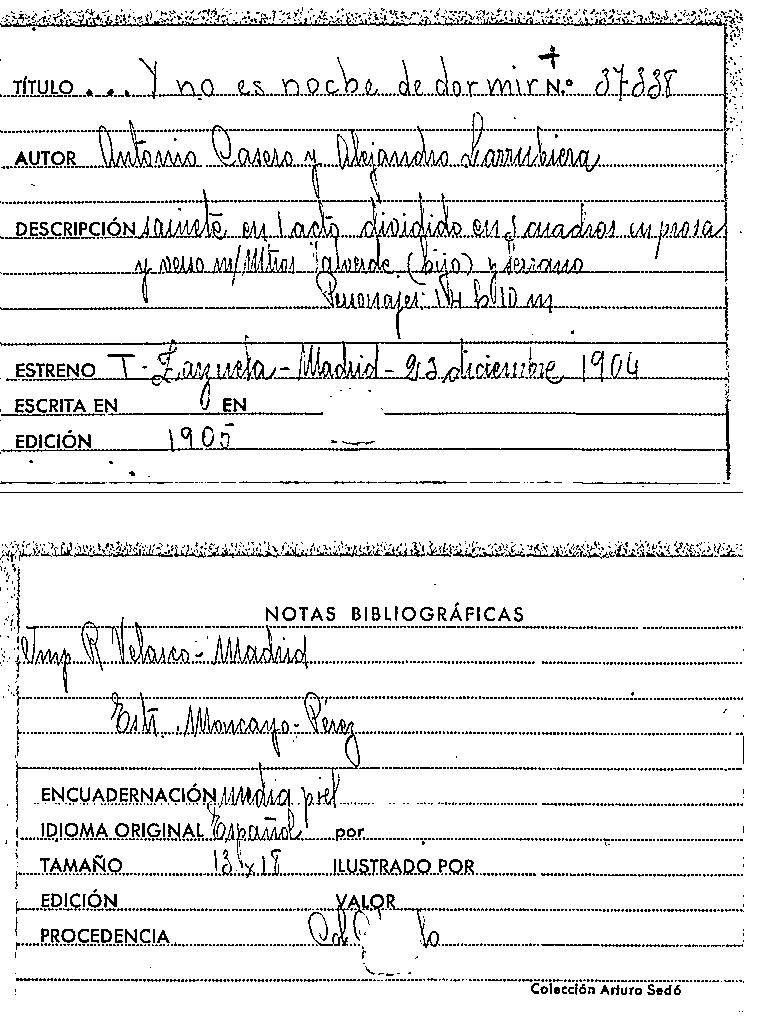 TÍTULO ... Y no es noche de dormir + N.º 37338
AUTOR Antonio Casero y Alejandro Larrubiera
DESCRIPCIÓN sainete en 1 acto dividido en 3 cuadros en prosa
y verso m/Mtros Valverde (hijo) y Serrano
Personajes: 10 m
ESTRENO T. Zarzuela - Madrid - 23 diciembre 1904
ESCRITA EN EN
EDICIÓN 1905
NOTAS BIBLIOGRÁFICAS
Imp R Velasco - Madrid
Estr. Moncayo - Pérez
ENCUADERNACIÓN media piel
IDIOMA ORIGINAL Español por
TAMAÑO 13 x 18 ILUSTRADO POR
EDICIÓN VALOR
PROCEDENCIA Col
Colección Arturo Sedó